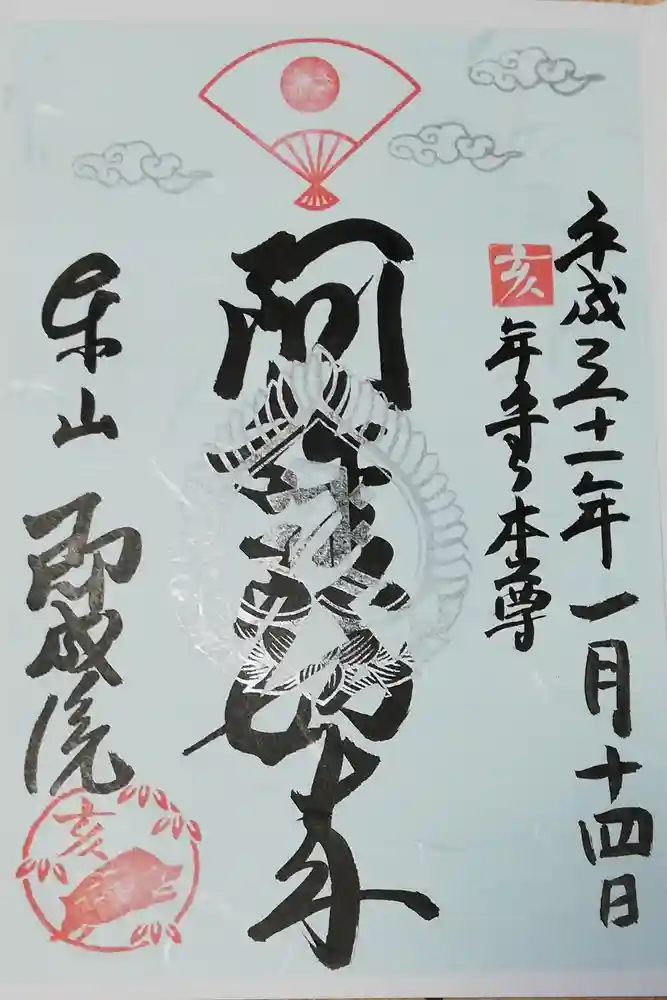 平成三十一年一月十四日
亥
年守り本尊
阿弥陀如来
泉山
即成院
亥